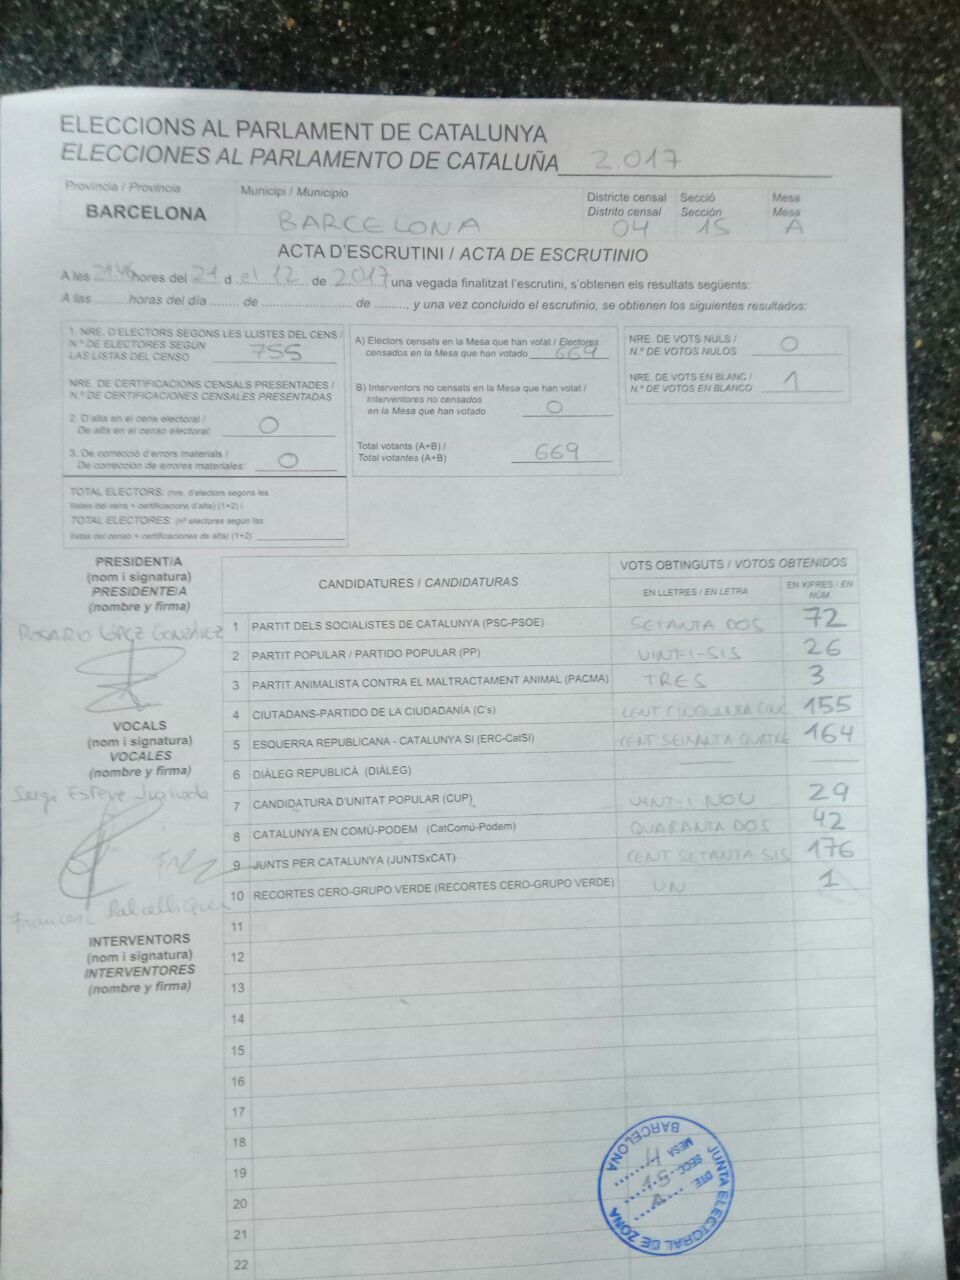 ELECCIONS AL PARLAMENT DE CATALUNYA
ELECCIONES AL PARLAMENTO DE CATALUÑA 2.017
Provincia / Provincia
BARCELONA
Municipi / Municipio
BARCELONA
Districte censal
Distrito censal
04
Secció
Sección
15
Mesa
Mesa
A
ACTA D'ESCRUTINI / ACTA DE ESCRUTINIO
A les hores del 21 d el 12 de 2.017, una vegada finalitzat l'escrutini, s'obtenen els resultats següents:
A las .........horas del día ........ de ........................ de ........., y una vez concluido el escrutinio, se obtienen los siguientes resultados:
1. NRE. D'ELECTORS SEGONS LES LLISTES DEL CENS /
N.º DE ELECTORES SEGÚN
LAS LISTAS DEL CENSO 755
NRE. DE CERTIFICACIONS CENSALS PRESENTADES /
N.º DE CERTIFICACIONES CENSALES PRESENTADAS
2. D'alta en el cens electoral /
De alta en el censo electoral: 0
3. De correcció d'errors materials /
De corrección de errores materiales: 0
TOTAL ELECTORS: (nre. d'electors segons les
llistes del cens + certificacions d'alta) (1+2) /
TOTAL ELECTORES: (nº electores según las
listas del censo + certificaciones de alta) (1+2)
A) Electors censats en la Mesa que han votat / Electores
censados en la Mesa que han votado 669
B) Interventors no censats en la Mesa que han votat /
Interventores no censados
en la Mesa que han votado 0
Total votants (A+B) /
Total votantes (A+B) 669
NRE. DE VOTS NULS /
N.º DE VOTOS NULOS 0
NRE. DE VOTS EN BLANC /
N.º DE VOTOS EN BLANCO 1
PRESIDENT/A
(nom i signatura)
PRESIDENTE/A
(nombre y firma)
ROSARIO LÓPEZ GONZÁLEZ
VOCALS
(nom i signatura)
VOCALES
(nombre y firma)
Sergi Esteve
Francesc
INTERVENTORS
(nom i signatura)
INTERVENTORES
(nombre y firma)
CANDIDATURES / CANDIDATURAS
VOTS OBTINGUTS / VOTOS OBTENIDOS
EN LLETRES / EN LETRA
EN XIFRES / EN
NÚM.
1 PARTIT DELS SOCIALISTES DE CATALUNYA (PSC-PSOE) SETANTA DOS 72
2 PARTIT POPULAR / PARTIDO POPULAR (PP) VINT-I-SIS 26
3 PARTIT ANIMALISTA CONTRA EL MALTRACTAMENT ANIMAL (PACMA) TRES 3
4 CIUTADANS-PARTIDO DE LA CIUDADANÍA (C's) CENT CINQUANTA CINC 155
5 ESQUERRA REPUBLICANA - CATALUNYA SI (ERC-CatSí) CENT SEIXANTA QUATRE 164
6 DIÀLEG REPUBLICÀ (DIÀLEG)
7 CANDIDATURA D'UNITAT POPULAR (CUP) VINT-I NOU 29
8 CATALUNYA EN COMÚ-PODEM (CatComú-Podem) QUARANTA DOS 42
9 JUNTS PER CATALUNYA (JUNTSxCAT) CENT SETANTA SIS 176
10 RECORTES CERO-GRUPO VERDE (RECORTES CERO-GRUPO VERDE) UN 1
11
12
13
14
15
16
17
18
19
20
21
22
JUNTA ELECTORAL DE ZONA
BARCELONA
DTE. A
SECC. 15
MESA 4